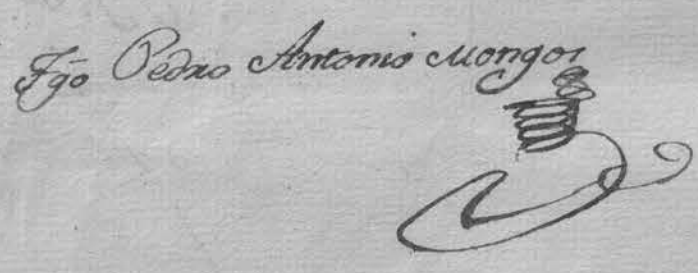 Tgo Pedro Antonio Mongos